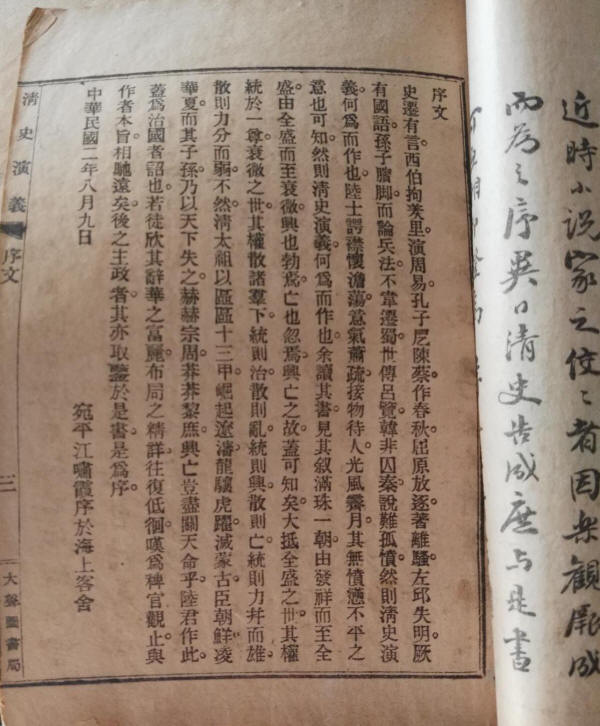 近時小說家之佼〻者因樂觀厥成
而為之序異日清史告成庶與是書
序文
史遷有言西伯拘羑里演周易孔子戹陳蔡作春秋屈原放逐著離騷左邱失明厥
有國語孫子臏脚而論兵法不韋遷蜀世傳呂覽韓非囚秦說難孤憤然則淸史演
義何爲而作也陸士諤襟懷澹蕩意氣蕭疏接物待人光風霽月其無憤懑不平之
意也可知然則淸史演義何爲而作也余讀其書見其叙滿珠一朝由發祥而至全
盛由全盛而至衰微興也勃焉亡也忽焉興亡之故蓋可知矣大抵全盛之世其權
統於一尊衰微之世其權散諸羣下統則治散則亂統則興散則亡統則力幷而雄
散則力分而弱不然淸太祖以區區十三甲崛起遼瀋龍驤虎躍滅蒙古臣朝鮮凌
華夏而其子孫乃以天下失之赫赫宗周莽莽黎庶興亡豈盡關天命乎陸君作此
蓋爲治國者詔也若徒欣其辭華之富麗布局之精詳往復低徊嘆爲稗官觀止與
作者本旨相馳遠矣後之主政者其亦取鑒於是書是爲序
中華民國二年八月九日
宛平江嘯霞序於海上客舍
淸史演義 序文 三 大聲圖書局